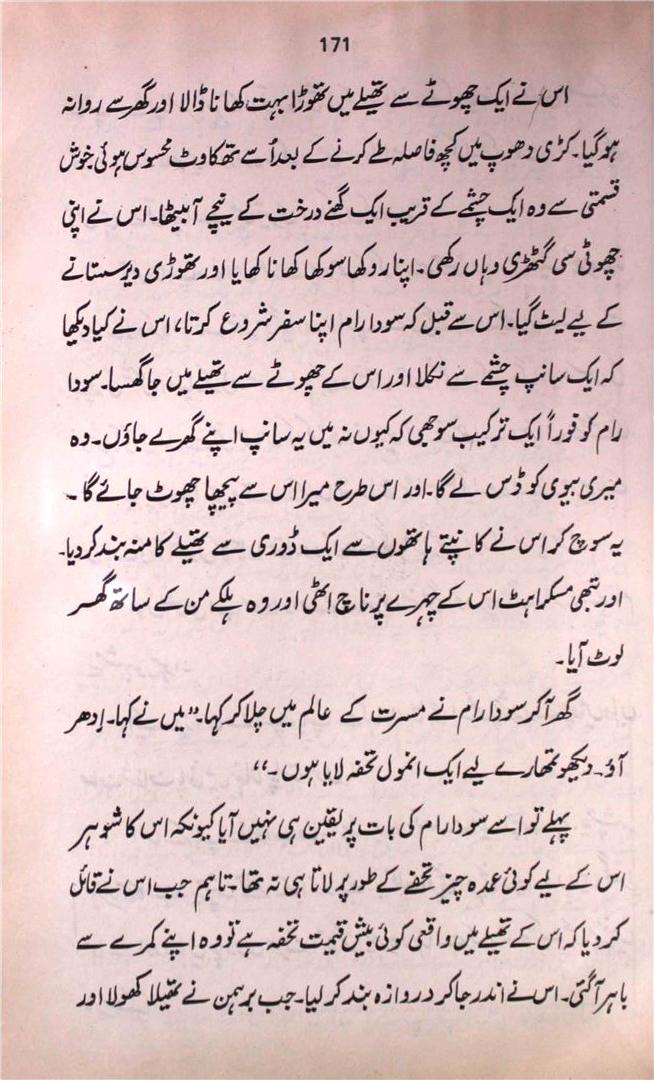 171
اس نے ایک چھوٹے سے تھیلے میں تھوڑا بہت کھانا ڈالا اور گھر سے روانہ
ہو گیا۔ کڑی دھوپ میں کچھ فاصلہ طے کرنے کے بعد اُسے تھکاوٹ محسوس ہوئی خوش
قسمتی سے وہ ایک چشمے کے قریب ایک گھنے درخت کے نیچے آ بیٹھا۔ اس نے اپنی
چھوٹی سی گٹھڑی وہاں رکھی۔ اپنا روکھا سوکھا کھانا کھایا اور تھوڑی دیر سستانے
کے لیے لیٹ گیا۔ اس سے قبل کہ سودا رام اپنا سفر شروع کرتا، اس نے کیا دیکھا
کہ ایک سانپ چشمے سے نکلا اور اس کے چھوٹے سے تھیلے میں جا گھسا۔ سودا
رام کو فوراً ایک ترکیب سوجھی کہ کیوں نہ میں یہ سانپ اپنے گھر لے جاؤں۔ وہ
میری بیوی کو ڈس لے گا۔ اور اس طرح میرا اس سے پیچھا چھوٹ جائے گا۔
یہ سوچ کر اس نے کانپتے ہاتھوں سے ایک ڈوری سے تھیلے کا منہ بند کر دیا۔
اور تبھی مسکراہٹ اس کے چہرے پر ناچ اٹھی اور وہ ہلکے من کے ساتھ گھر
لوٹ آیا۔
گھر آ کر سودا رام نے مسرت کے عالم میں چلا کر کہا۔ ”میں نے کہا۔ اِدھر
آؤ۔ دیکھو تمھارے لیے ایک انمول تحفہ لایا ہوں۔“
پہلے تو اسے سودا رام کی بات پر یقین ہی نہیں آیا کیونکہ اس کا شوہر
اس کے لیے کوئی عمدہ چیز تحفے کے طور پر لاتا ہی نہ تھا۔ تاہم جب اس نے قائل
کر دیا کہ اس کے تھیلے میں واقعی کوئی بیش قیمت تحفہ ہے تو وہ اپنے کمرے سے
باہر آ گئی۔ اس نے اندر جا کر دروازہ بند کر لیا۔ جب برہمن نے تھیلا کھولا اور